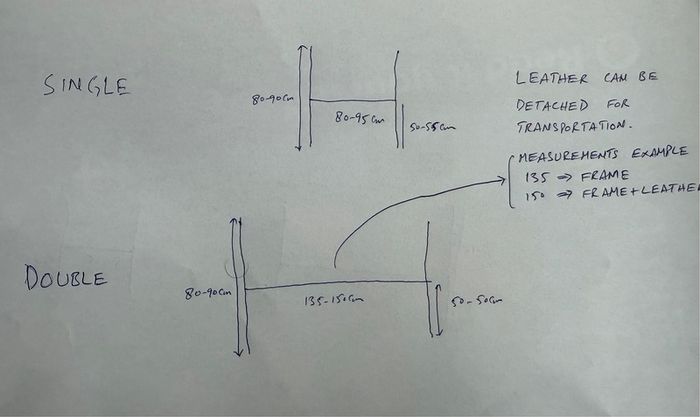 SINGLE
80-90cm
80-95cm
50-55cm
LEATHER CAN BE
DETACHED FOR
TRANSPORTATION.
MEASUREMENTS EXAMPLE
135 ⇒ FRAME
150 ⇒ FRAME+LEATHER
DOUBLE
80-90cm
135-150cm
50-50cm